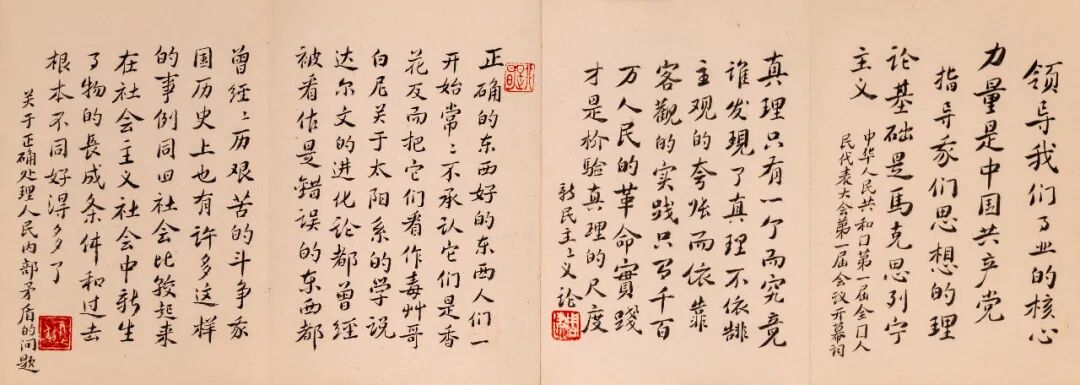 领导我们事业的核心
力量是中国共产党
指导我们思想的理
论基础是馬克思列宁
主义
中华人民共和国第一届全国人
民代表大会第一届会议开幕词
真理只有一个而究竟
谁发現了真理不依靠
主观的夸张而依靠
客觀的实践只有千百
万人民的革命實踐
才是检验真理的尺度
新民主主义论
正确的东西好的东西人们一
开始常〻不承认它们是香
花反而把它们看作毒艸哥
白尼关于太阳系的学说
达尔文的进化论都曾经
被看作是錯误的东西都
曾经〻历艰苦的斗争我
国历史上也有许多这样
的事例同旧社会比较起来
在社会主义社会中新生
事物的長成条件和过去
根本不同好得多了
关于正确处理人民内部矛盾的问题